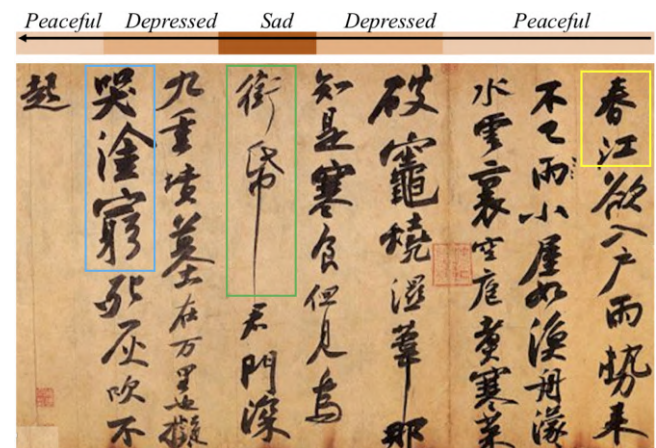 Peaceful Depressed Sad Depressed Peaceful
春江欲入户雨勢来
不已雨小屋如漁舟濛
水雲裏空庖煮寒菜
破竈燒濕葦那
知是寒食但見烏
銜帋君門深
九重墳墓在万里也擬
哭塗窮死灰吹不
起